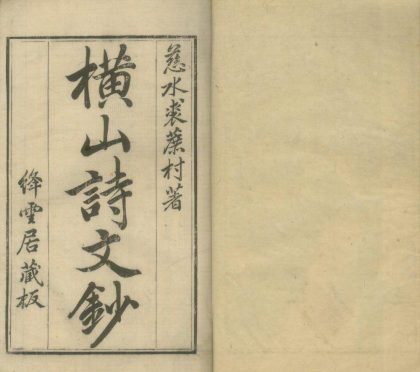 慈水裘蔗村著
橫山詩文鈔
絳雲居藏板